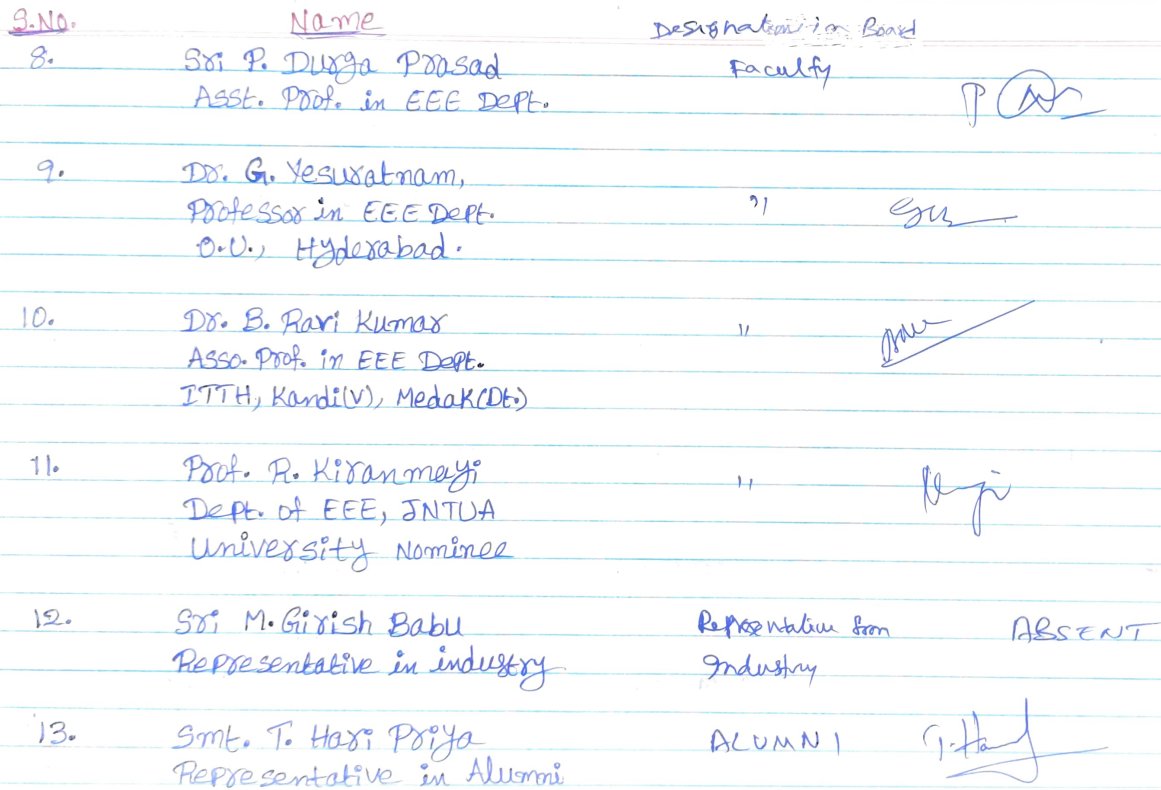 S.No. Name Designation in Board
8. Sri P. Durga Prasad Faculty
Asst. Prof. in EEE Dept.
9. Dr. G. Yesuratnam,
Professor in EEE Dept. "
O.U., Hyderabad.
10. Dr. B. Ravi Kumar "
Asso. Prof. in EEE Dept.
ITTH, Kandi(V), Medak(Dt.)
11. Prof. R. Kiranmayi "
Dept. of EEE, JNTUA
University Nominee
12. Sri M. Girish Babu Representative from ABSENT
Representative in industry Industry
13. Smt. T. Hari Priya ALUMNI T. Hari
Representative in Alumni